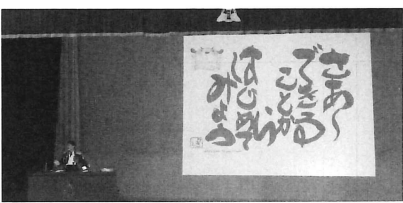 さあ~
できる
ことから
はじめて
みよう